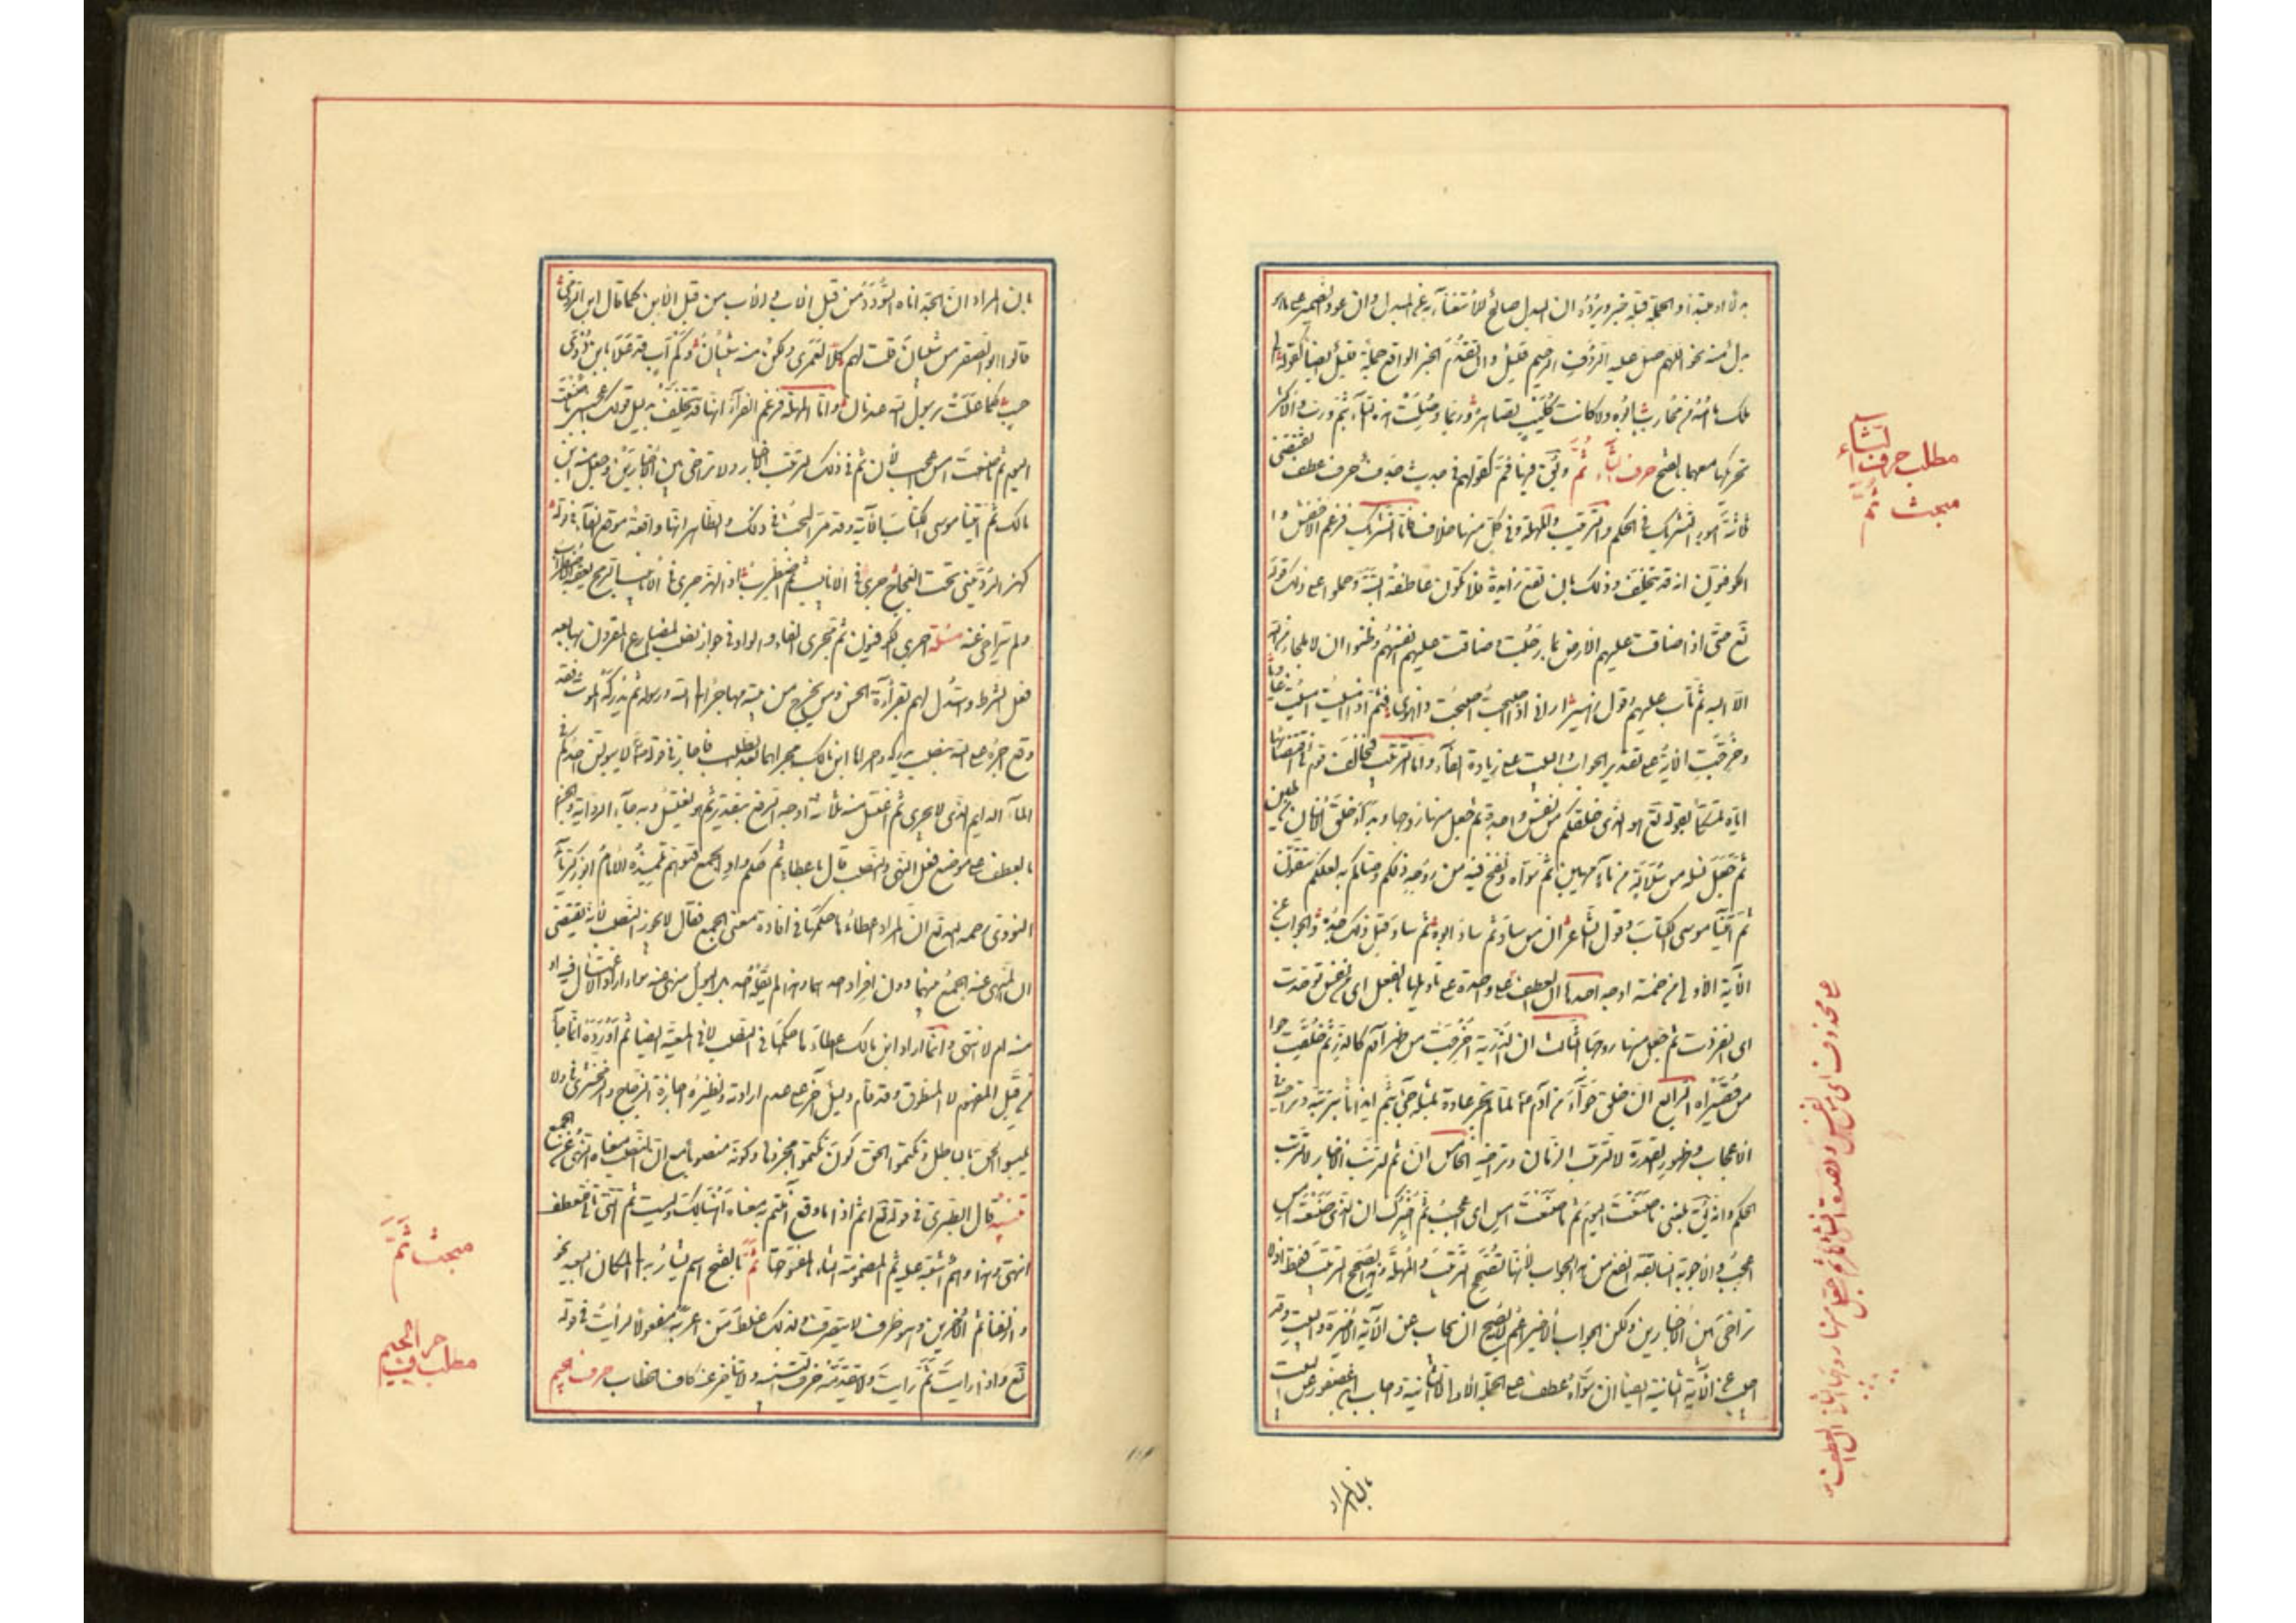 بدل منه نحو اللهم صل عليه الرؤف الرحيم قليل وان تقدم الخبر الواقع جملة قليل ايضا كقوله
تحريكها معهما بالفتح حرف الثاء ثم ويق فيها فم كقولهم في جدث جدف حرف عطف يقتضى
ثلثة امور التشريك في الحكم والترتيب والمهلة وفي كل منها خلاف فاما التشريك فزعم الاخفش وا
لكوفيون انه قد يتخلف وذلك بان تقع زايدة فلا تكون عاطفة البتة وحملوا على ذلك قوله
تع حتى اذا ضاقت عليهم الارض بما رحبت وضاقت عليهم انفسهم وظنوا ان لا ملجاء من الله
الا اليه ثم تاب عليهم وقول زهير ارانى اذا اصبحت اصبحت ذا هوى فثم اذا امسيت امسيت غاديا
وخرجت الاية على تقدير الجواب والبيت على زيادة الفاء واما الترتيب فخالف قوم في اقتضائها
اياه تمسكا بقوله تع هو الذى خلقكم من نفس واحدة ثم جعل منها زوجها وبدا خلق الانسان من طين
ثم جعل نسله من سلالة من ماء مهين ثم سواه ونفخ فيه من روحه ذلكم وصاكم به لعلكم تتقون
ثم اتينا موسى الكتاب وقول الشاعر ان من ساد ثم ساد ابوه ثم ساد قبل ذلك جده والجواب عن
الآية الاولى من خمسة اوجه احدها ان العطف على واحدة على تاويلها بالفعل اى من نفس توحدت
اى انفردت ثم جعل منها زوجها الثالث ان الذرية اخرجت من ظهر آدم كالذر ثم خلقت حوا
من قصيراه الرابع ان خلق حواء من آدم لما لم تجر عادة بمثله جئ بثم ايذانا بترتبه وتراخيه في
الاعجاب وظهور القدرة لا لترتب الزمان وتراخيه الخامس ان ثم لترتب الاخبار لا لترتب
الحكم وانه يق بلغنى ما صنعت اليوم ثم ما صنعت امس اعجب اى ثم اخبرك ان الذى صنعته امس
اعجب والاجوبة السابقة انفع من هذا الجواب لانها تصحح الترتب والمهلة وهذا يصحح الترتب فقط اذ لا
تراخى بين الاخبارين ولكن الجواب الاخير اعم لانه يصح ان يجاب به عن الآية الاخيرة والبيت وقد
اجيب عن الآية الثانية ايضا ان سواه عطف على الجملة الاولى لا الثانية واجاب ابن عصفور عن البيت
مطلب حرف الثاء
مبحث ثم
بان المراد
بان المراد ان الجد اتاه السودد من قبل الاب والاب من قبل الابن كما قال ابن الرومى
قالوا ابو الصقر من شيبان قلت لهم كلا لعمرى ولكن منه شيبان وكم اب قد علا بابن ذرى
حسب كما علت برسول الله عدنان واما المهلة فزعم الفراء انها قد تتخلف بدليل قولك اعجبنى ما صنعت
اليوم ثم ما صنعت امس اعجب لان ثم في ذلك لترتب الاخبار ولا تراخى بين الاخبارين وجعل منه ابن
مالك ثم اتينا موسى الكتاب الآية وقد مر البحث في ذلك والظاهر انها واقعة موقع الفاء في قوله
كهز الردينى تحت العجاج جرى في الانابيب ثم اضطرب اذ الهز جرى في الانابيب يعقبه الاضطراب
ولم يتراخ عنه مسئلة اجرى الكوفيون ثم مجرى الفاء والواو في جواز نصب المضارع المقرون بها بعد
فعل الشرط واستدل لهم بقراءة الحسن ومن يخرج من بيته مهاجرا الى الله ورسوله ثم يدركه الموت فقد
وقع اجره على الله بنصب يدركه واجراها ابن مالك مجراهما بعد الطلب فاجاز في قوله لا يبولن احدكم في
الماء الدايم الذى لا يجرى ثم يغتسل منه ثلثة اوجه الرفع بتقدير ثم هو يغتسل وبه جاء الرواية والجزم
بالعطف على موضع فعل النهى والنصب قال باعطاء ثم حكم واو الجمع فتوهم تلميذه الامام ابو زكريا
النووى رحمه الله تع ان المراد اعطاؤها حكمها في افادة معنى الجمع فقال لا يجوز النصب لانه يقتضى
ان المنهى عنه الجمع بينهما دون افراد احدهما وهذا لم يقله احد بل البول منهى عنه سواء اراد الاغتسال فيه او
منه ام لا انتهى وانما اراد ابن مالك اعطاءها حكمها في النصب لا في المعية ايضا ثم ما اورده انما جاء
من قبل المفهوم لا المنطوق وقد قام دليل آخر على عدم ارادته ونظيره اجازة الزجاج والزمخشرى في ولا
تلبسوا الحق بالباطل وتكتموا الحق كون تكتموا مجزوما وكونه منصوبا مع ان النصب معناه النهى عن الجمع
تنبيه قال الطبرى في قوله تع اثم اذا ما وقع آمنتم به معناه اهنالك وليست ثم التى تاتى للعطف
انتهى وهذا وهم اشتبه عليه ثم المضمومة الثاء بالمفتوحها ثم بالفتح اسم يشار به الى المكان البعيد نحو
وازلفنا ثم الآخرين وهو ظرف لا يتصرف ولذلك غلط من اعربه مفعولا لرايت في قوله
تع واذا رايت ثم رايت ولا يتقدمه حرف التنبيه ولا يتاخر عنه كاف الخطاب حرف الجيم
مبحث ثم
مطلب حرف الجيم